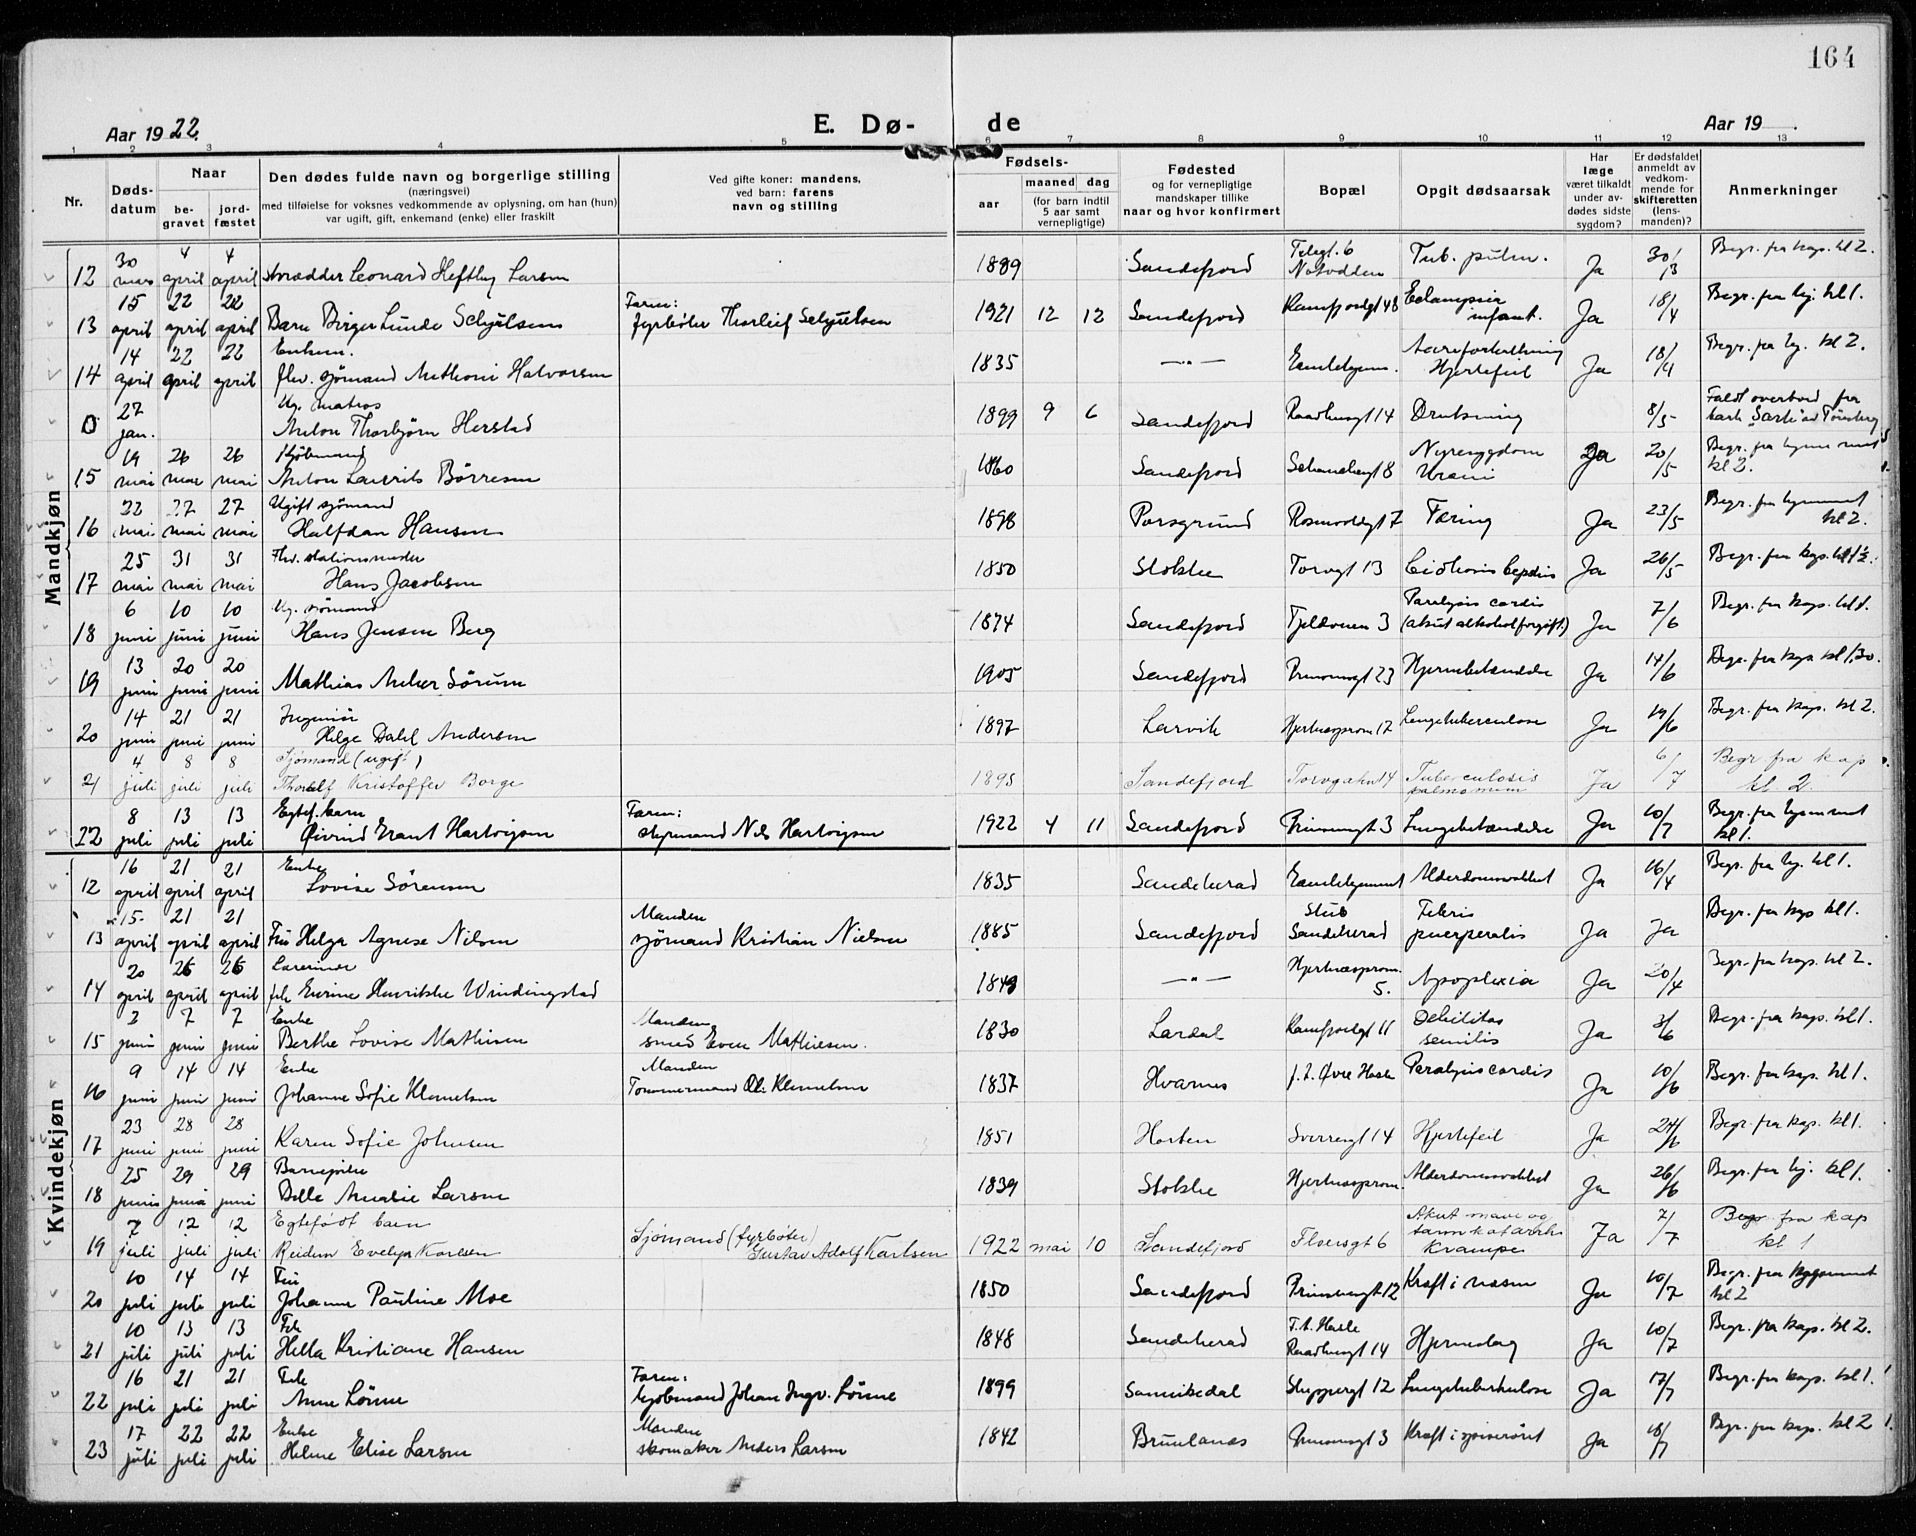 164
Aar 1922.
E. Dø-
de
Aar 19
1 2 3 4 5 6 7 8 9 10 11 12 13
Nr.
Døds-
datum
Naar
be-
gravet
jord-
fæstet
Den dødes fulde navn og borgerlige stilling
(næringsvei)
med tilføielse for voksnes vedkommende av oplysning, om han (hun)
var ugift, gift, enkemand (enke) eller fraskilt
Ved gifte koner: mandens,
ved barn: farens
navn og stilling
Fødsels-
aar
maaned dag
(for barn indtil
5 aar samt
vernepligtige)
Fødested
og for vernepligtige
mandskaper tillike
naar og hvor konfirmert
Bopæl
Opgit dødsaarsak
Har
læge
været tilkaldt
under av-
dødes sidste
sygdom?
Er dødsfaldet
anmeldt av
vedkom-
mende for
skifteretten
(lens-
manden)?
Anmerkninger
Mandkjøn
12 30 mars 4 april 4 april Skrædder Leonard Heftley Larsen 1889 Sandefjord Telegt. 6 Notodden Tub. pulm. Ja 30/3 Begr. fra kap. kl 2.
13 15 april 22 april 22 april Barn Birger Lunde Schjelsen Faren: fyrbøter Thorleif Schjelsen 1921 12 12 Sandefjord 48 Eclampsia infant. Ja 18/4 Begr. fra hj. kl 1.
14 14 april 22 april 22 april Enkem. fhv. sjömand Anthoni Halvorsen 1835 —"— Aareforkalkning Hjertefeil Ja 18/4 Begr. fra hj. kl 2.
0 27 jan. Ug. matros Anton Thorbjörn Herstad 1899 9 6 Sandefjord Raadhusgt 14 Drukning 8/5 Faldt overbord fra bark av Tønsberg
15 19 mai 26 mai 26 mai Kjöbmand Anton Laurits Börresen 1860 Sandefjord 8 Nyresygdom Uræmi Ja 20/5 Begr. fra hjemmet kl 2.
16 22 mai 27 mai 27 mai Ugift sjömand Halfdan Hansen 1898 Porsgrund 7 Tæring Ja 23/5 Begr. fra hjemmet kl 2.
17 25 mai 31 mai 31 mai Fhv. stationsmester Hans Jacobsen 1850 Stokke Torvgt 13 Ja 26/5 Begr. fra kap. kl 1½.
18 6 juni 10 juni 10 juni Ug. sjömand Hans Jensen Berg 1874 Sandefjord Fjeldveien 3 Paralysis cordis (akut alkoholforgift.) Ja 7/6 Begr. fra kap. kl 1.
19 13 juni 20 juni 20 juni Mathias Anker Sörum 1905 Sandefjord Prinsensgt 23 Hjernebetændelse Ja 14/6 Begr. fra kap kl 1,30.
20 14 juni 21 juni 21 juni Ingeniör Helge Dahl Andersen 1897 Larvik Hjertnesprom 12 Lungetuberculose Ja 19/6 Begr. fra kap. kl 2.
21 4 juli 8 juli 8 juli Sjømand (ugift) Thoralf Kristoffer Borge 1898 Sandefjord 14 Tuberculosis pulmonum Ja 6/7 Begr fra kap kl 2.
22 8 juli 13 juli 13 juli Egtef. barn Øivind Ernst Hartvigsen Faren: styrmand Nils Hartvigsen 1922 4 11 Sandefjord Prinsensgt 3 Lungebetændelse Ja 10/7 Begr. fra hjemmet kl 1.
Kvindekjøn
12 16 april 21 april 21 april Enke Lovise Sörensen 1835 Sandeherad Gamlehjemmet Alderdomssvakhet Ja 16/4 Begr. fra hj. kl 1.
13 15. april 21 april 21 april Fru Helga Agnese Nilsen Manden sjömand Kristian Nielsen 1885 Sandefjord Stub Sandeherad Febris puerperalis Ja Ja Begr. fra kap kl 1.
14 20 april 26 april 26 april Lærerinde frk Eurine Henrikke Windingstad 1849 —"— Hjertnesprom. 5. Apoplexia Ja 20/4 Begr. fra kap. kl 2.
15 2 juni 7 juni 7 juni Enke Berthe Lovise Mathisen Manden smed Even Mathiesen. 1830 Lardal 11 Debilitas senilis Ja 3/6 Begr. fra kap. kl 1.
16 9 juni 14 juni 14 juni Enke Johanne Sofie Klemetsen Manden Tömmermand Ole Klemetsen 1837 Hvarnes Øvre Hasle Paralysis cordis Ja 10/6 Begr. fra kap. kl 1.
17 23 juni 28 juni 28 juni Karen Sofie Johnsen 1851 Horten Sverresgt 14 Hjertefeil Ja 24/6 Begr. fra kap. kl 1.
18 25 juni 29 juni 29 juni Barnepike Bolle Amalie Larsen 1839 Stokke Hjertnesprom. Alderdomssvakhet Ja 26/6 Begr. fra hj. kl 1.
19 7 juli 12 juli 12 juli Egtefödt barn Reidun Evelyn Karlsen Sjømand (fyrbøter) Gustav Adolf Karlsen 1922 mai 10 Sandefjord 6 Akut mave og tarmkatarrh Krampe Ja 7/7 Begr fra kap kl 1
20 10 juli 14 juli 14 juli Fru Johanne Pauline Moe 1850 Sandefjord Prinsensgt 12 Kræft i næsen Ja 10/7 Begr. fra hjemmet kl 2
21 10 juli 13 juli 13 juli Frk Hella Kristiane Hansen 1848 Sandeherad Hasle Raadhusgt 14 Hjerneslag Ja 10/7 Begr. fra kap. kl 2.
22 16 juli 21 juli 21 juli Frk Anne Lönne Faren: kjöbmand Johan Ingv. Lönne 1899 Sannikedal Skippergt 12 Lungetuberkulose Ja 17/7 Begr. fra kap. kl 1.
23 17 juli 22 juli 22 juli Enke Helene Elise Larsen Manden skomaker Anders Larsen 1842 Brunlanes Prinsensgt 3 Kræft i spiserøret Ja 18/7 Begr. fra kap. kl 2